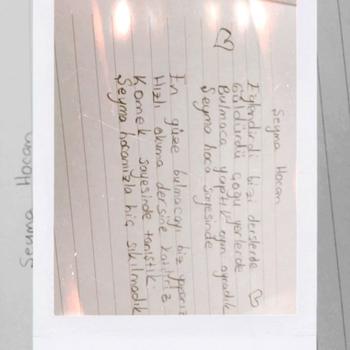 Şeyma Hocam
Eğlendirdi bizi derslerde
Güldürdü çoğu yerlerde
Bulmaca yaptık oyun oynadık
Şeyma hoca sayesinde
En güze bulmacayı biz yaparız
Hızlı okuma dersine katılırız
Komek sayesinde tanıştık
Şeyma hocamızla hiç sıkılmadık
Seyma Hocam